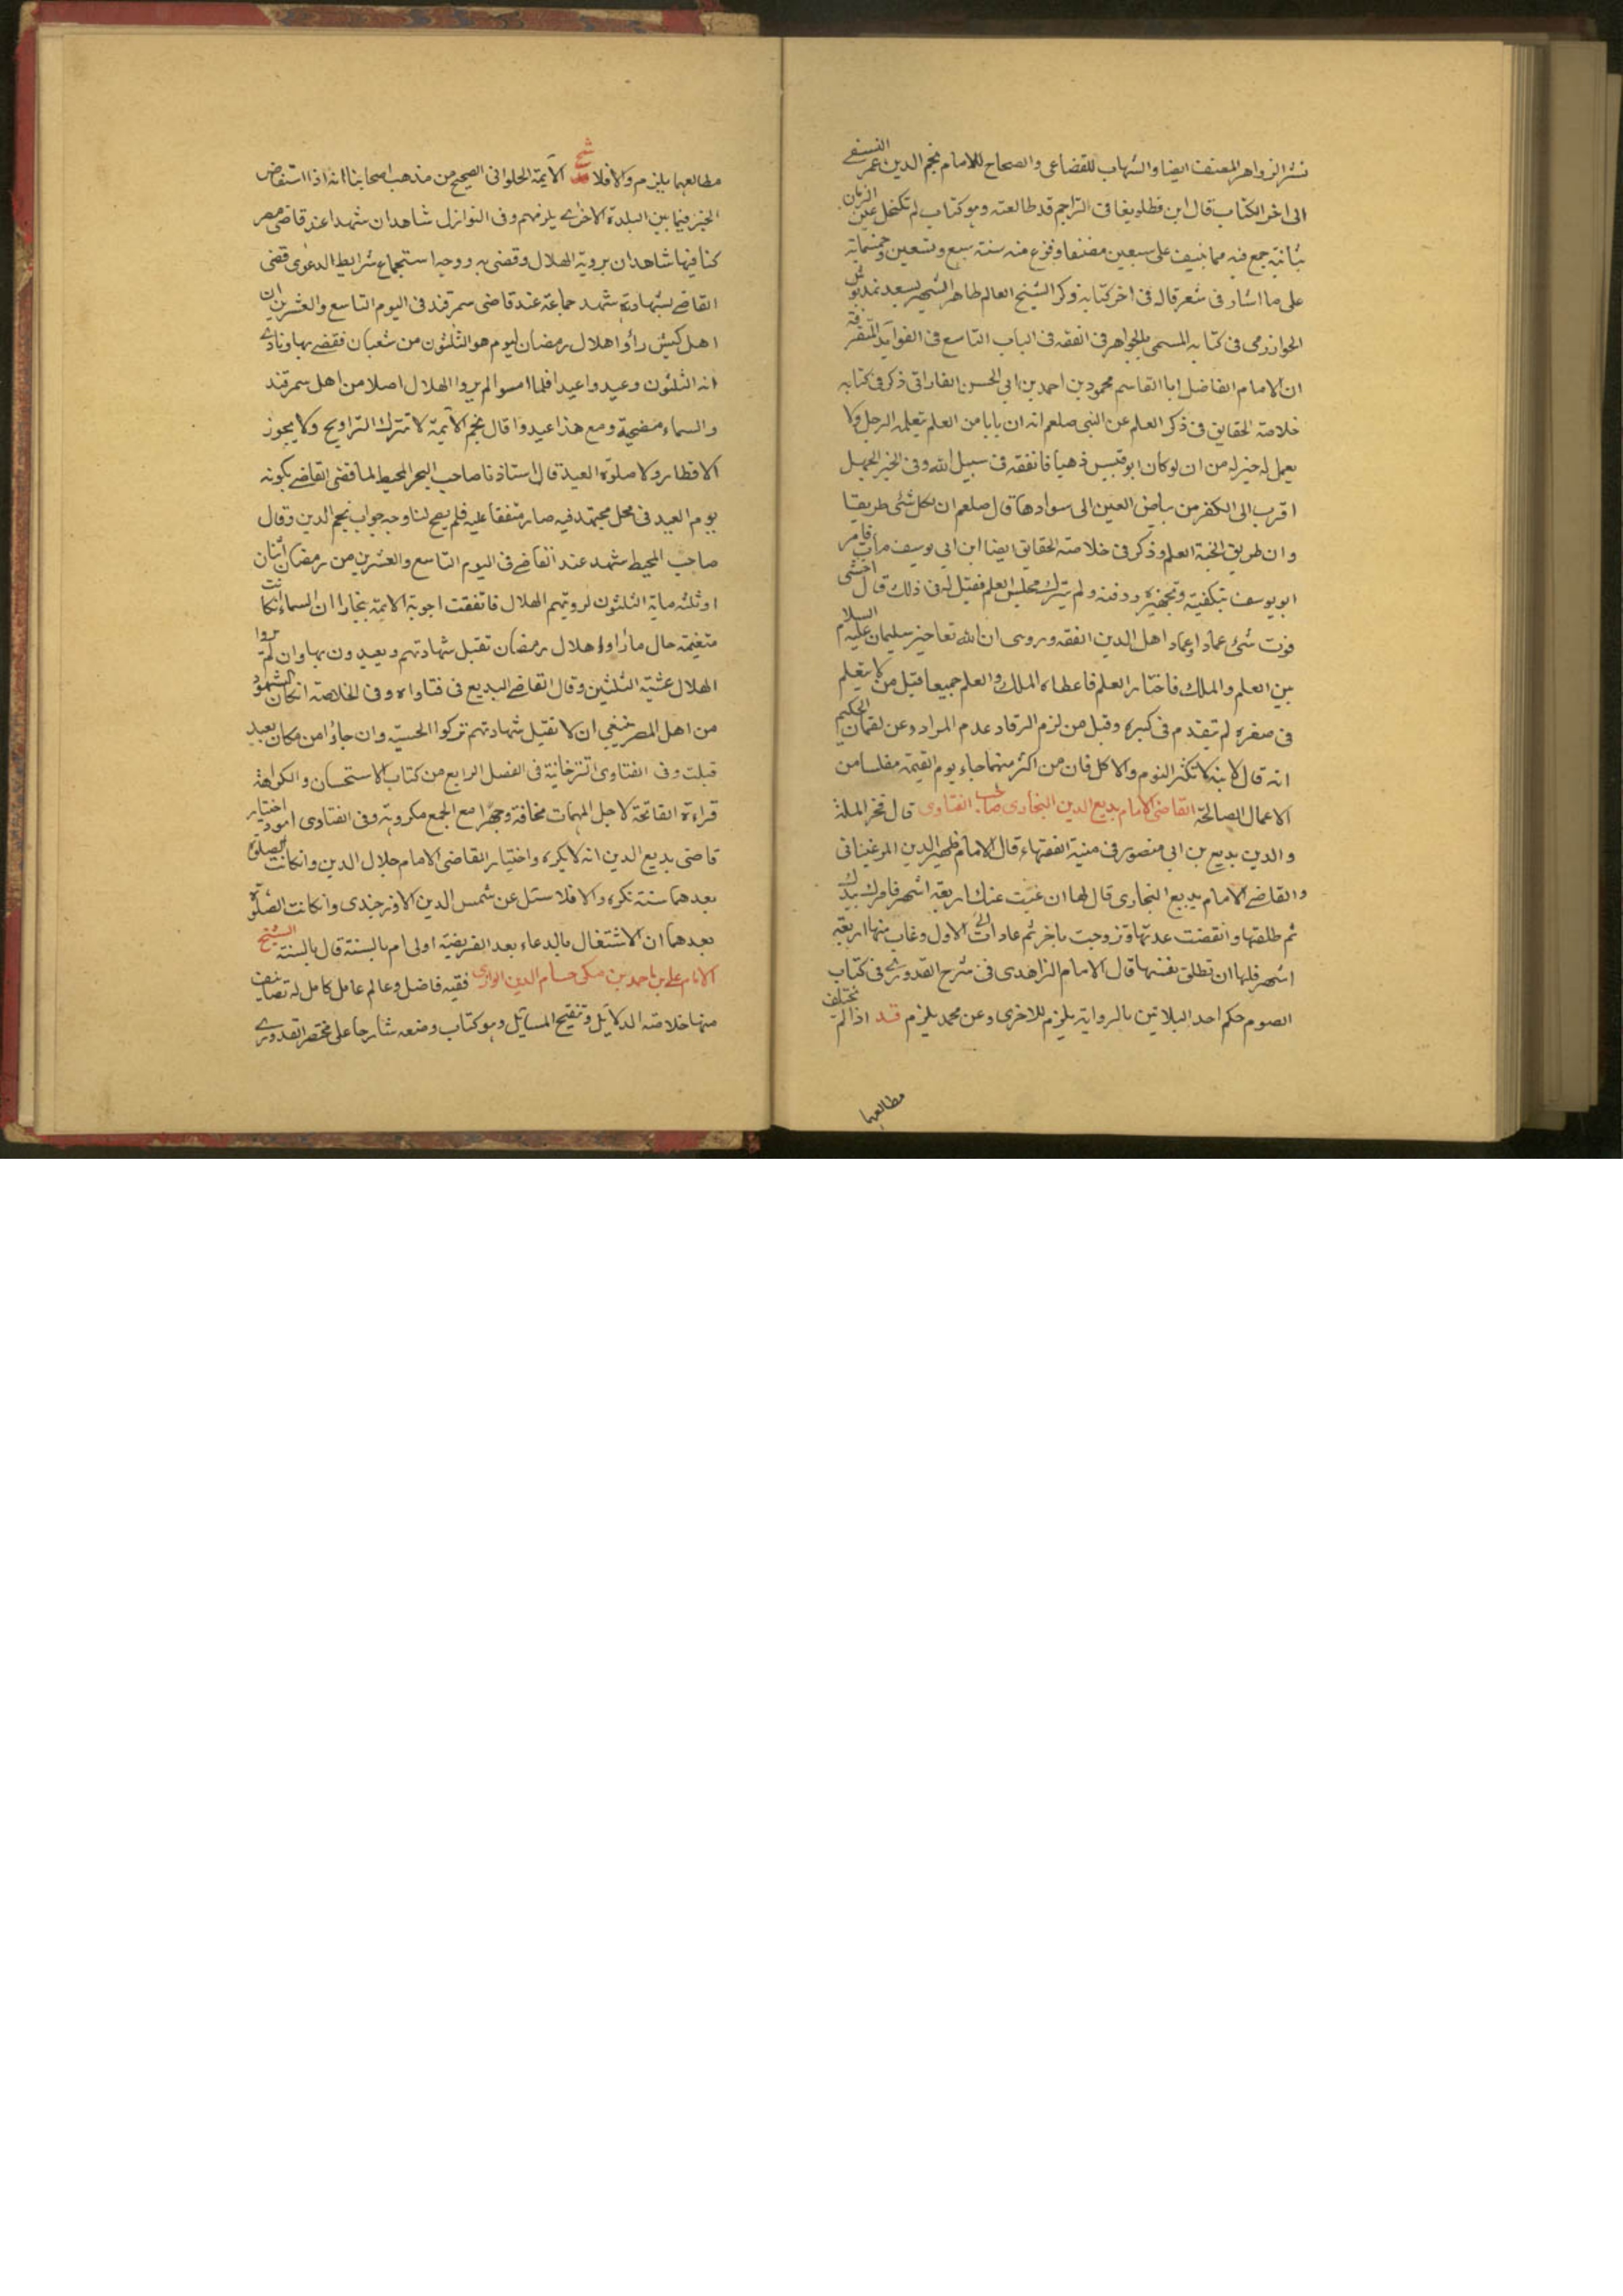 نشر الزواهر المصنف ايضا والشهاب للقضاعى والصحاح للامام نجم الدين عمر النسفى
الى اخر الكتاب قال ابن قطلوبغا فى التراجم قد طالعته وهو كتاب لم تكتحل عين الزمان
بثانيه جمع فيه مما ينيف على سبعين مصنفا وفرغ منه سنة سبع وتسعين وخمسماية
على ما اشار فى شعر قاله فى اخر كتابه وذكر الشيخ العالم طاهر الشهير بسعد نمدپوش
الخوارزمى فى كتابه المسمى بالجواهر فى الفقه فى الباب التاسع فى الفوآيد المتفرقة
ان الامام الفاضل ابا القاسم محمود بن احمد بن ابى الحسن الفارابى ذكر فى كتابه
خلاصة الحقايق فى ذكر العلم عن النبى صلعم انه ان بابا من العلم يتعلمه الرجل ولا
يعمل له خير له من ان لو كان ابو قبيس ذهبا فانفقه فى سبيل الله وفى الخبر الجهل
اقرب الى الكفر من بياض العين الى سوادها قال صلعم ان لكل شئ طريقا
وان طريق الجنة العلم وذكر فى خلاصة الحقايق ايضا ابن ابى يوسف مات فامر
ابو يوسف بتكفينه وتجهيزه ودفنه ولم يترك مجلس العلم فقيل له فى ذلك قال اخشى
فوت شئ عماد اهل الدين الفقه وروى ان الله تعا خير سليمان عليه السلام
بين العلم والملك فاختار العلم فاعطاه الملك والعلم جميعا قيل من لا يتعلم
فى صغره لم يتقدم فى كبره وقيل من لزم الرقاد عدم المراد وعن لقمان الحكيم
انه قال لابنه لا تكثر النوم والاكل فان من اكثر منهما جاء يوم القيمة مفلسا من
الاعمال الصالحة القاضى الامام بديع الدين البخارى صاحب الفتاوى قال فخر الملة
والدين بديع بن ابى منصور فى منية الفقهاء قال الامام ظهير الدين المرغينانى
والقاضى الامام بديع البخارى قال لها ان غبت عنك اربعة اشهر فامرك بيدك
ثم طلقها وانقضت عدتها وتزوجت باخر ثم عادت الى الاول وغاب منها اربعة
اشهر فلها ان تطلق نفسها قال الامام الزاهدى فى شرح القدورى فى كتاب
الصوم حكم احد البلاتين بالرواية يلزم للاخرى وعن محمد يلزم قد اذا لم تختلف
مطالعهما
مطالعهما يلزم والا فلا شمس الايمة الحلوانى الصحيح من مذهب اصحابنا انه اذا استفاض
الخبر فيما بين البلدة الاخرى يلزمهم وفى النوازل شاهدان شهدا عند قاضى مصر
كنا فيها شاهدان بروية الهلال وقضى به ووجد استجماع شرايط الدعوى قضى
القاضى بشهادته شهد جماعة عند قاضى سمرقند فى اليوم التاسع والعشرين ان
اهل كيش رأوا هلال رمضان ليوم هو الثلثون من شعبان فقضى بها ونادى
انه الثلثون وعيد واعيدا فلما امسوا لم يروا الهلال اصلا من اهل سمرقند
والسماء مضحية ومع هذا عيدوا قال نجم الآيمة لا تترك التراويح ولا يجوز
الافطار ولا صلوة العيد قال استاذنا صاحب البحر المحيط لما قضى القاضى بكونه
يوم العيد فى محل مجتهد فيه صار متفقا عليه فلم يصح لنا وجه جواب نجم الدين وقال
صاحب المحيط شهد عند القاضى فى اليوم التاسع والعشرين من رمضان اثنان
او ثلثه ماية الثلثون لرويتهم الهلال فاتفقت اجوبة الايمة ببخارا ان السماء انكانت
متغيمة حال ما رأوا هلال رمضان تقبل شهادتهم ويعيدون بها وان لم يروا
الهلال عشية الثلثين وقال القاضى البديع فى فتاواه وفى الخلاصة انكان الشهود
من اهل المصر ينبغى ان لا تقبل شهادتهم تركوا الحسبة وان جاؤا من مكان بعيد
قبلت وفى الفتاوى التترخانية فى الفصل الرابع من كتاب الاستحسان والكراهة
قراءة الفاتحة لاجل المهمات مخافتة وجهرا مع الجمع مكروهة وفى الفتاوى اختيار
قاضى بديع الدين انه لا يكره واختيار القاضى الامام جلال الدين وانكانت الصلوة
بعدهما سنة تكره والا فلا سئل عن شمس الدين الاوزجندى وانكانت الصلوة
بعدهما ان الاشتغال بالدعاء بعد الفريضة اولى ام بالسنة قال بالسنة الشيخ
الامام على بن احمد بن مكى حسام الدين الرازى فقيه فاضل وعالم عامل كامل له تصانيف
منها خلاصة الدلايل وتنقيح المسايل وهو كتاب وضعه شارحا على مختصر القدورى